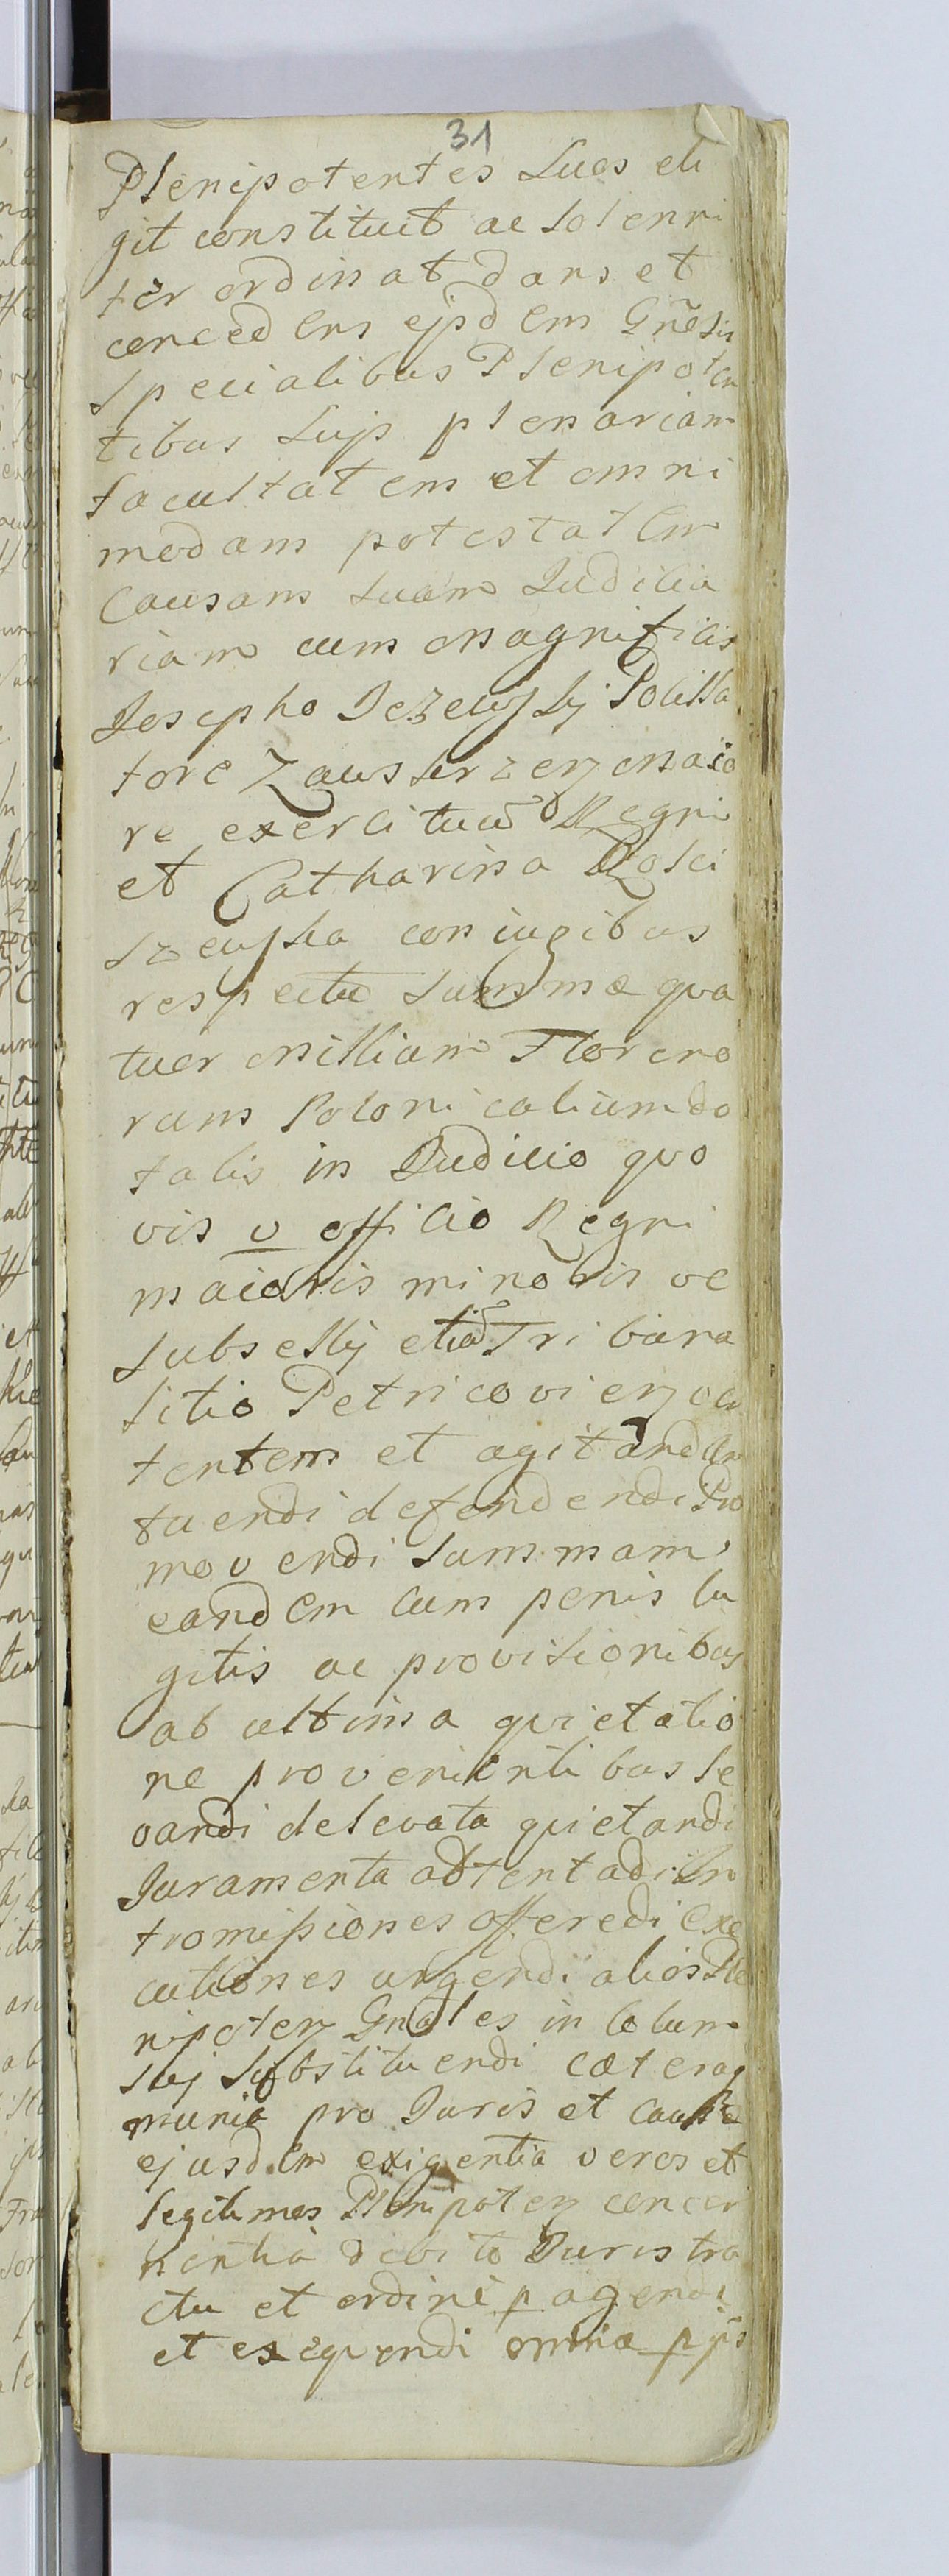 31
Plenipotentes Suos eli
git constituit ac Solenni
ter ordinat dans et
concedens ejsdem Gnẽlis
specialibus Plenipoten
tibus Suis plenariam
facultatem et omni
modam potestatem
Causam suam Judicia
riam cum Magnificis
Josepho Jezewskj Pocilla
tore Zawskrzen Maio
re exercituu Regni
et Catharina Rosci
szewska coniugibus
respectu Summæ qua
tuor Millium Floreno
rum Polonicalium do
talis in Judicio quo
vis v officio Regni
maioris minoris ve
subsellij etia Tribuna
litio Petricovien ver
tentem et agitandem
tuendi defendendi Pro
movendi Summam
eandem cum penis lu
gitis ac provisionibus
ab ultima quietatio
ne provenientibus le
vandi de levata quietandi
Juramenta adtentadi In
tromissiones offeredi Exe
cutiones urgendi alios Ple
nipoten Gnales in locum
sui Substituendi cæteraq
munia pro Juris et causæ
ejusdem exigentia veros et
legitimos Plenipoten concer
nentia debito Juris tra
ctu et ordine pagendi
et exequendi omnia pp̃s